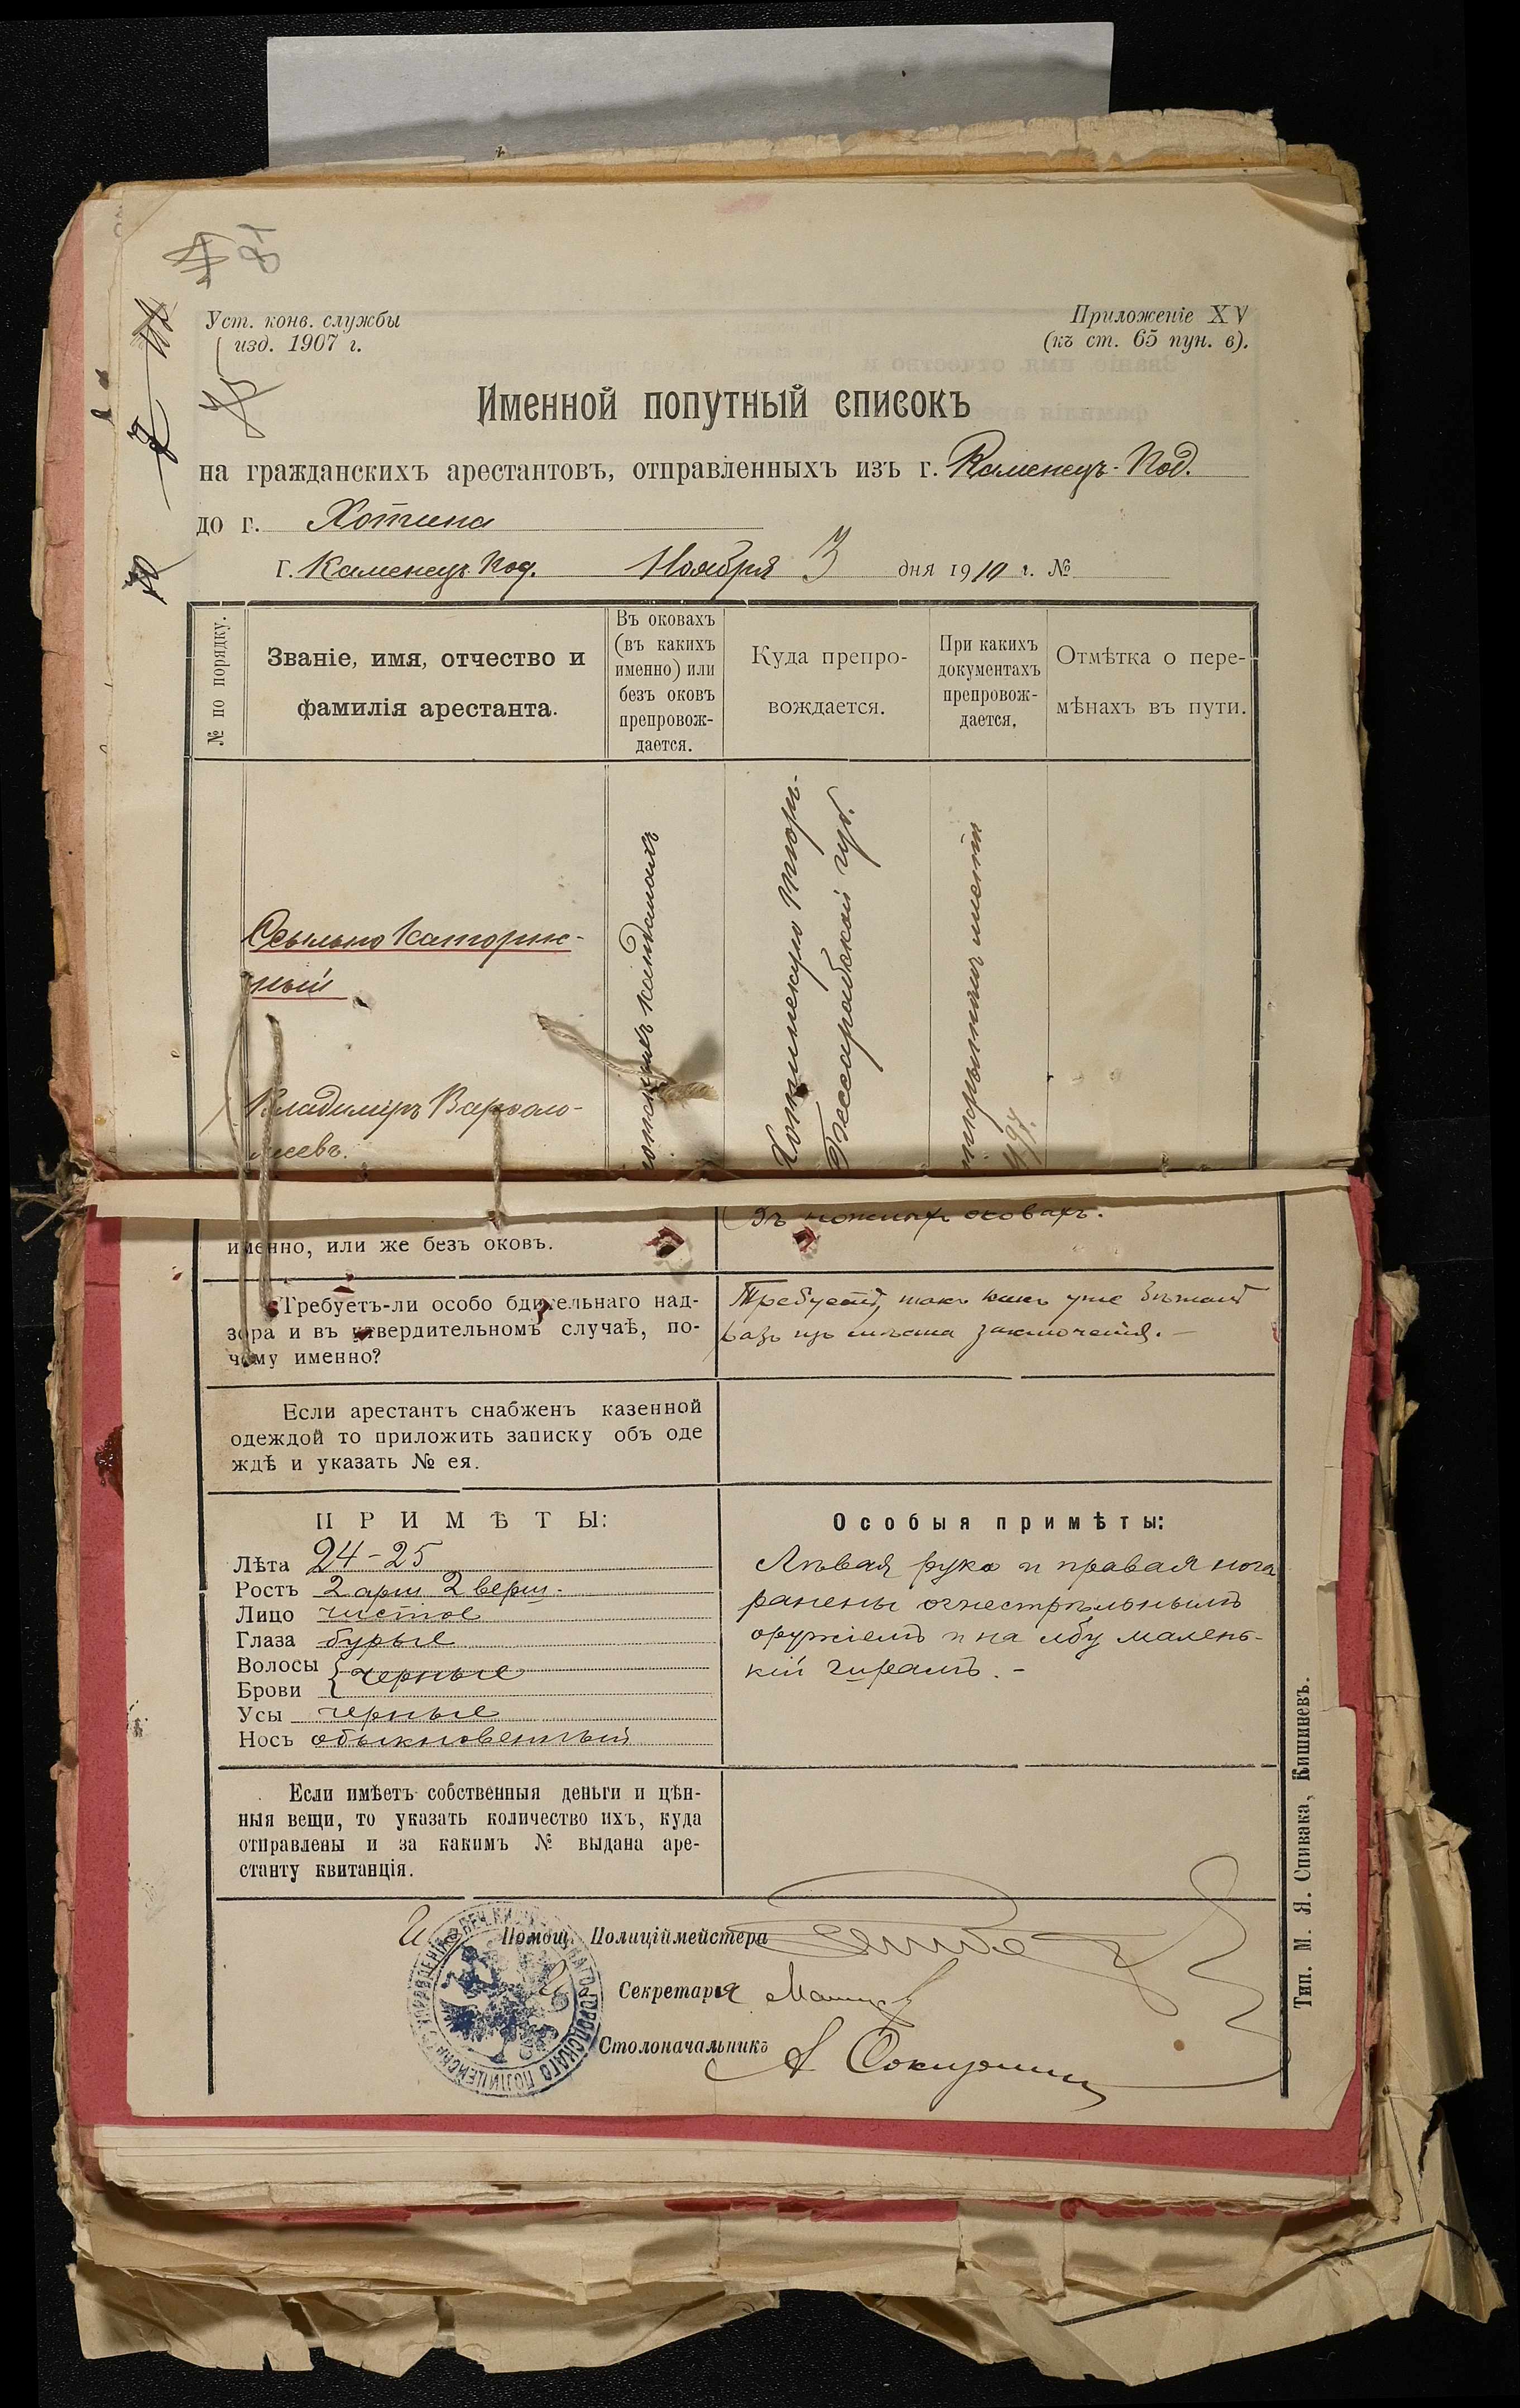 81
Уст. конв. службы
изд. 1907 г.
Приложеніе XV
(къ ст. 65 пун. в).
Именной попутный списокъ
на гражданскихъ арестантовъ, отправленныхъ изъ г. Каменецъ-Под.
до г. Хотина
Г. Каменецъ Под. Ноября 3 дня 1910 г. №
№ по порядку.
Званіе, имя, отчество и
фамилія арестанта.
Въ оковахъ
(въ какихъ
именно) или
безъ оковъ
препровож-
дается.
Куда препро-
вождается.
При какихъ
документахъ
препровож-
дается.
Отмѣтка о пере-
мѣнахъ въ пути.
Ссыльно Каторж-
ный
Владимиръ Варфоло-
меевъ.
ножныхъ кандалахъ
Хотинскую тюрь-
Бессарабской губ.
открытый листъ
497.
Въ ножныхъ оковахъ.
именно, или же безъ оковъ.
Требуетъ-ли особо бдительнаго над-
зора и въ утвердительномъ случаѣ, по-
чему именно?
Требуетъ, такъ какъ уже бѣжалъ
разъ изъ мѣста заключенія. —
Если арестантъ снабженъ казенной
одеждой то приложить записку объ оде
ждѣ и указать № ея.
ПРИМѢТЫ:
Лѣта 24-25
Ростъ 2 арш 2 верш.
Лицо чистое
Глаза бурые
Волосы
Брови черные
Усы черные
Носъ обыкновенный
Особыя примѣты:
Лѣвая рука и правая нога
ранены огнестрѣльнымъ
оружіемъ и на лбу малень-
кій шрамъ. —
Если имѣетъ собственныя деньги и цѣн-
ныя вещи, то указать количество ихъ, куда
отправлены и за какимъ № выдана аре-
станту квитанція.
Помощ. Полиціймейстера
Секретаря
Столоначальникъ
Тип. М. Я. Спивака, Кишиневъ.